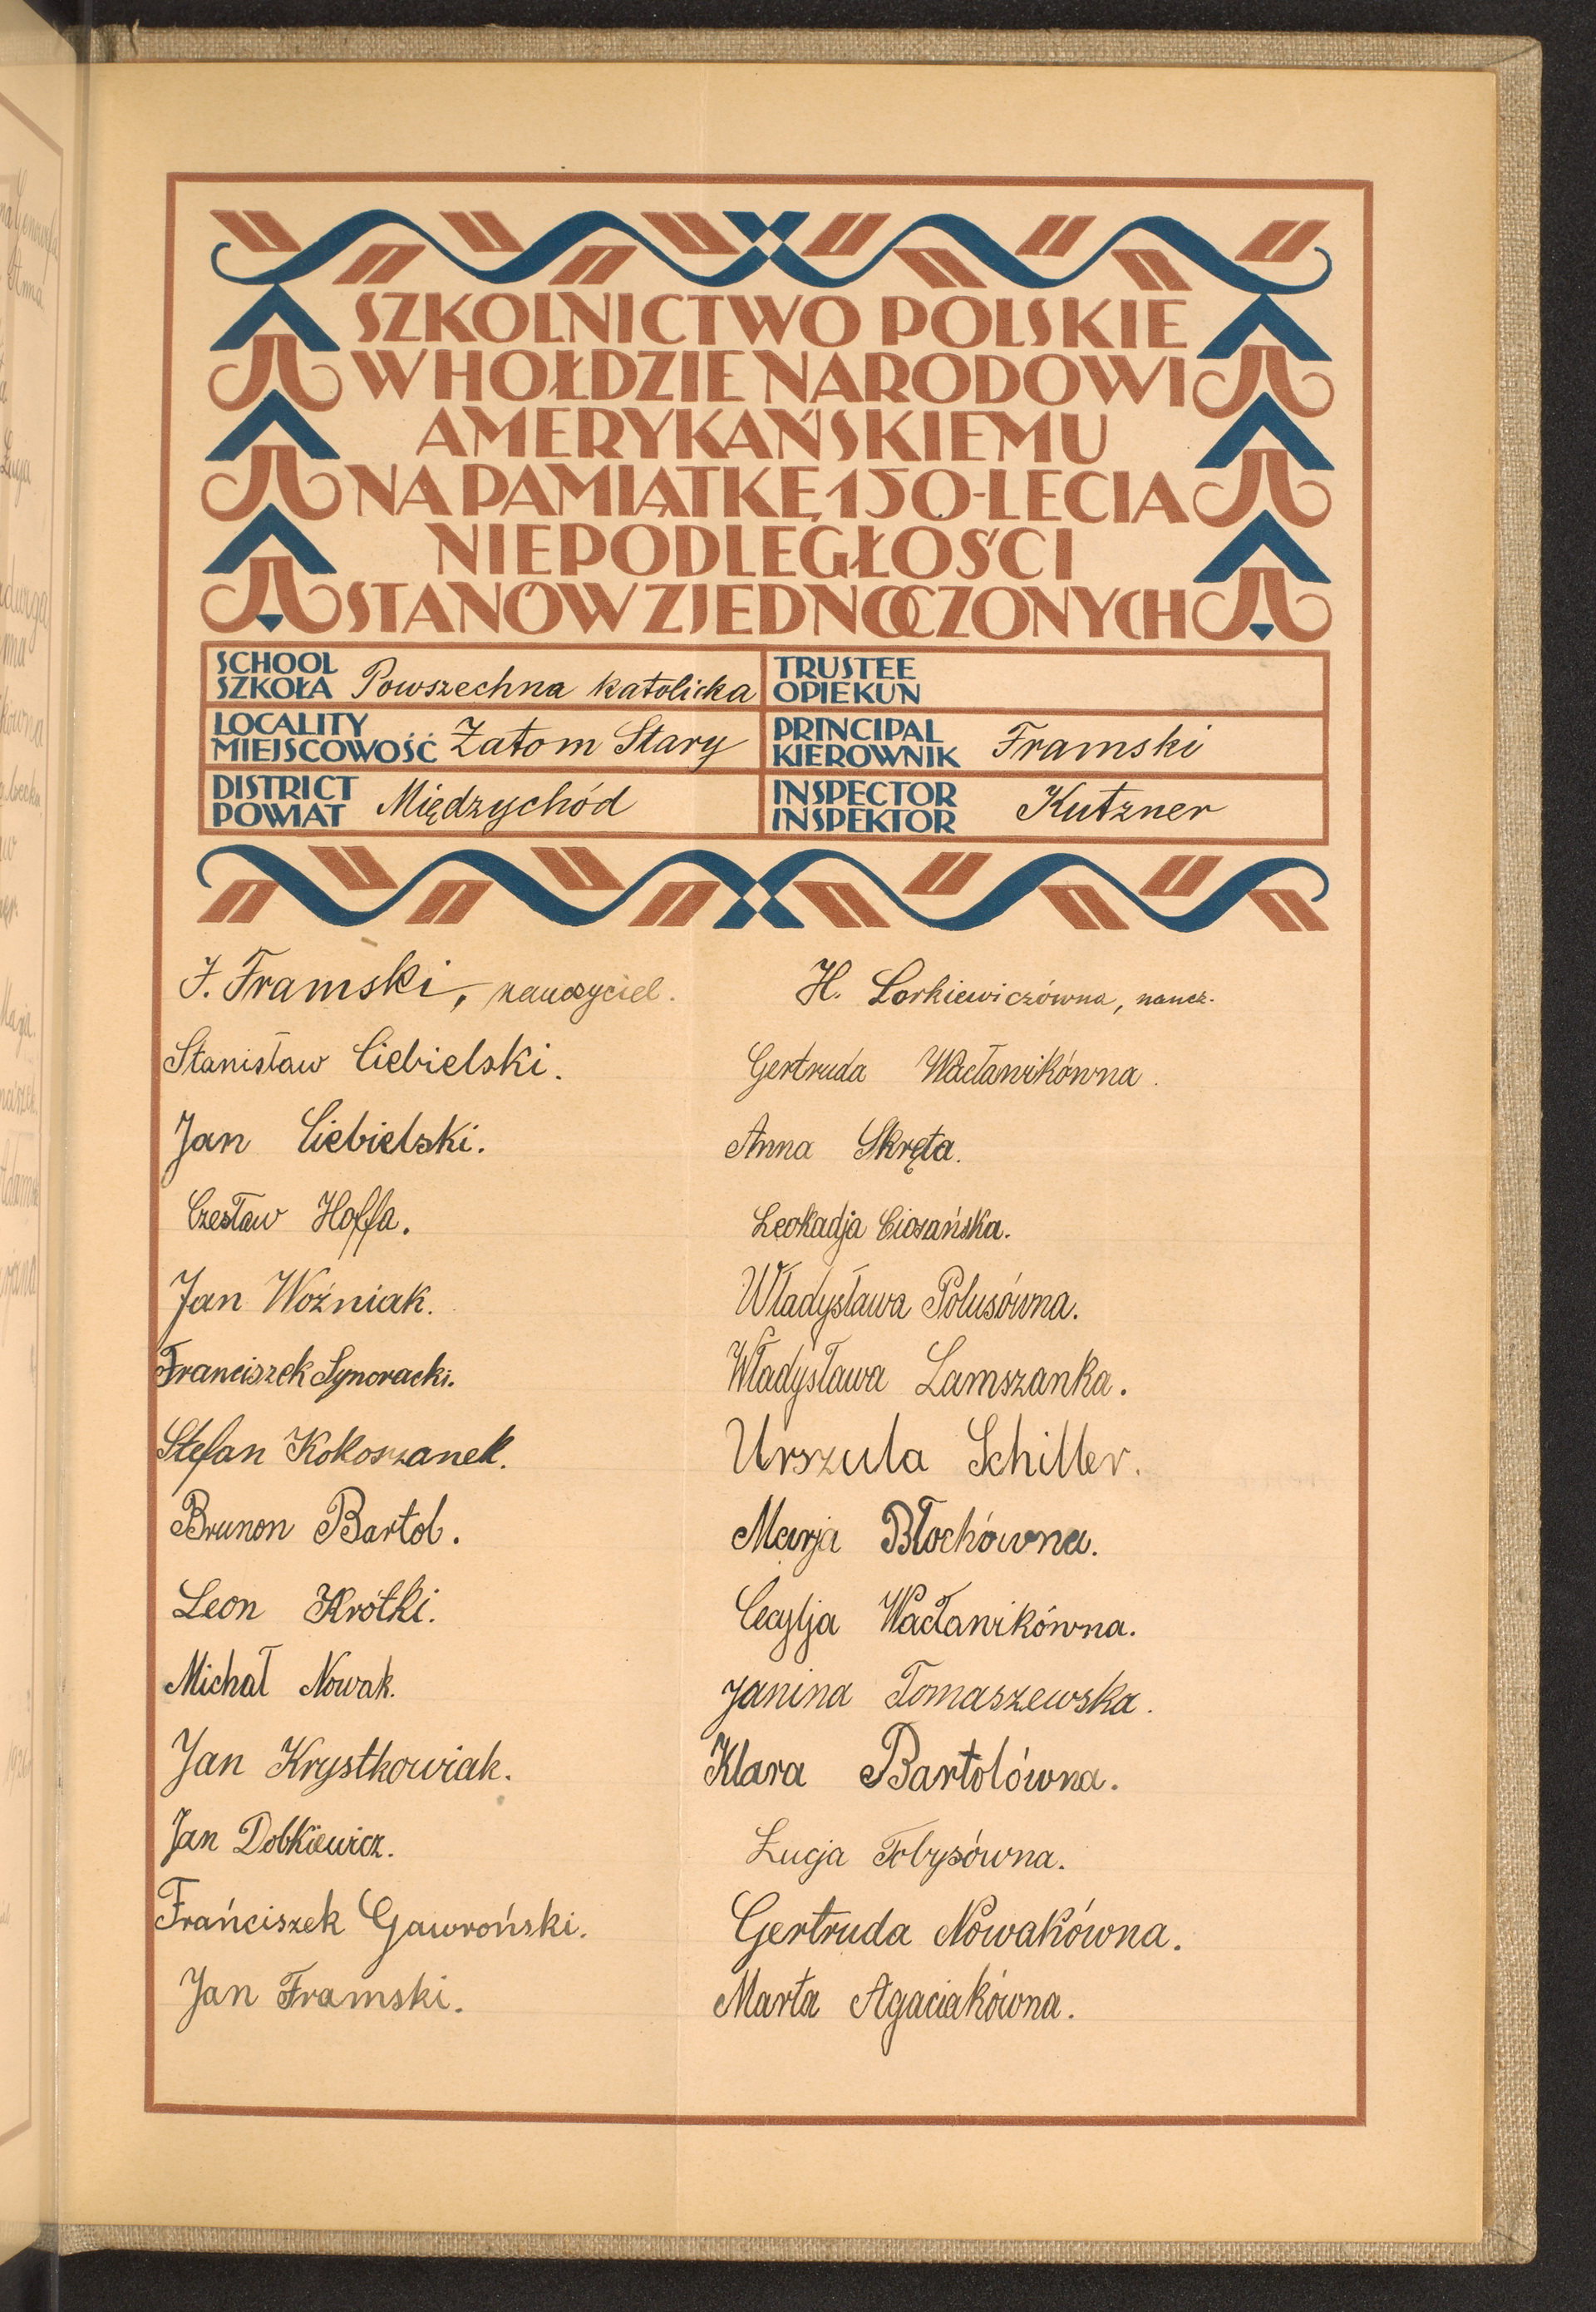 SZKOLNICTWO POLSKIE
W HOŁDZIE NARODOWI
AMERYKAŃSKIEMU
NA PAMIĄTKĘ 150-LECIA
NIEPODLEGŁOŚCI
STANÓW ZJEDNOCZONYCH
SCHOOL
SZKOŁA Powszechna katolicka
TRUSTEE
OPIEKUN
LOCALITY
MIEJSCOWOŚĆ Zatom Stary
PRINCIPAL
KIEROWNIK Framski
DISTRICT
POWIAT Międzychód
INSPECTOR
INSPEKTOR Kutzner
J. Framski, nauczyciel.
Stanisław Ciebielski.
Jan Ciebielski.
Czesław Hoffa.
Jan Woźniak.
Franciszek Synoracki.
Stefan Kokoszanek.
Brunon Bartol.
Leon Krótki.
Michał Nowak.
Jan Krystkowiak.
Jan Dobkiewicz.
Frańciszek Gawroński.
Jan Framski.
H. Lorkiewiczówna, naucz.
Gertruda Wacławikówna.
Anna Skręta.
Leokadja Ciosańska.
Władysława Polusówna.
Władysława Lamszanka.
Urszula Schiller.
Marja Błochówna.
Cecylja Wacławikówna.
Janina Tomaszewska.
Klara Bartolówna.
Łucja Tobysówna.
Gertruda Nowakówna.
Marta Agaciakówna.